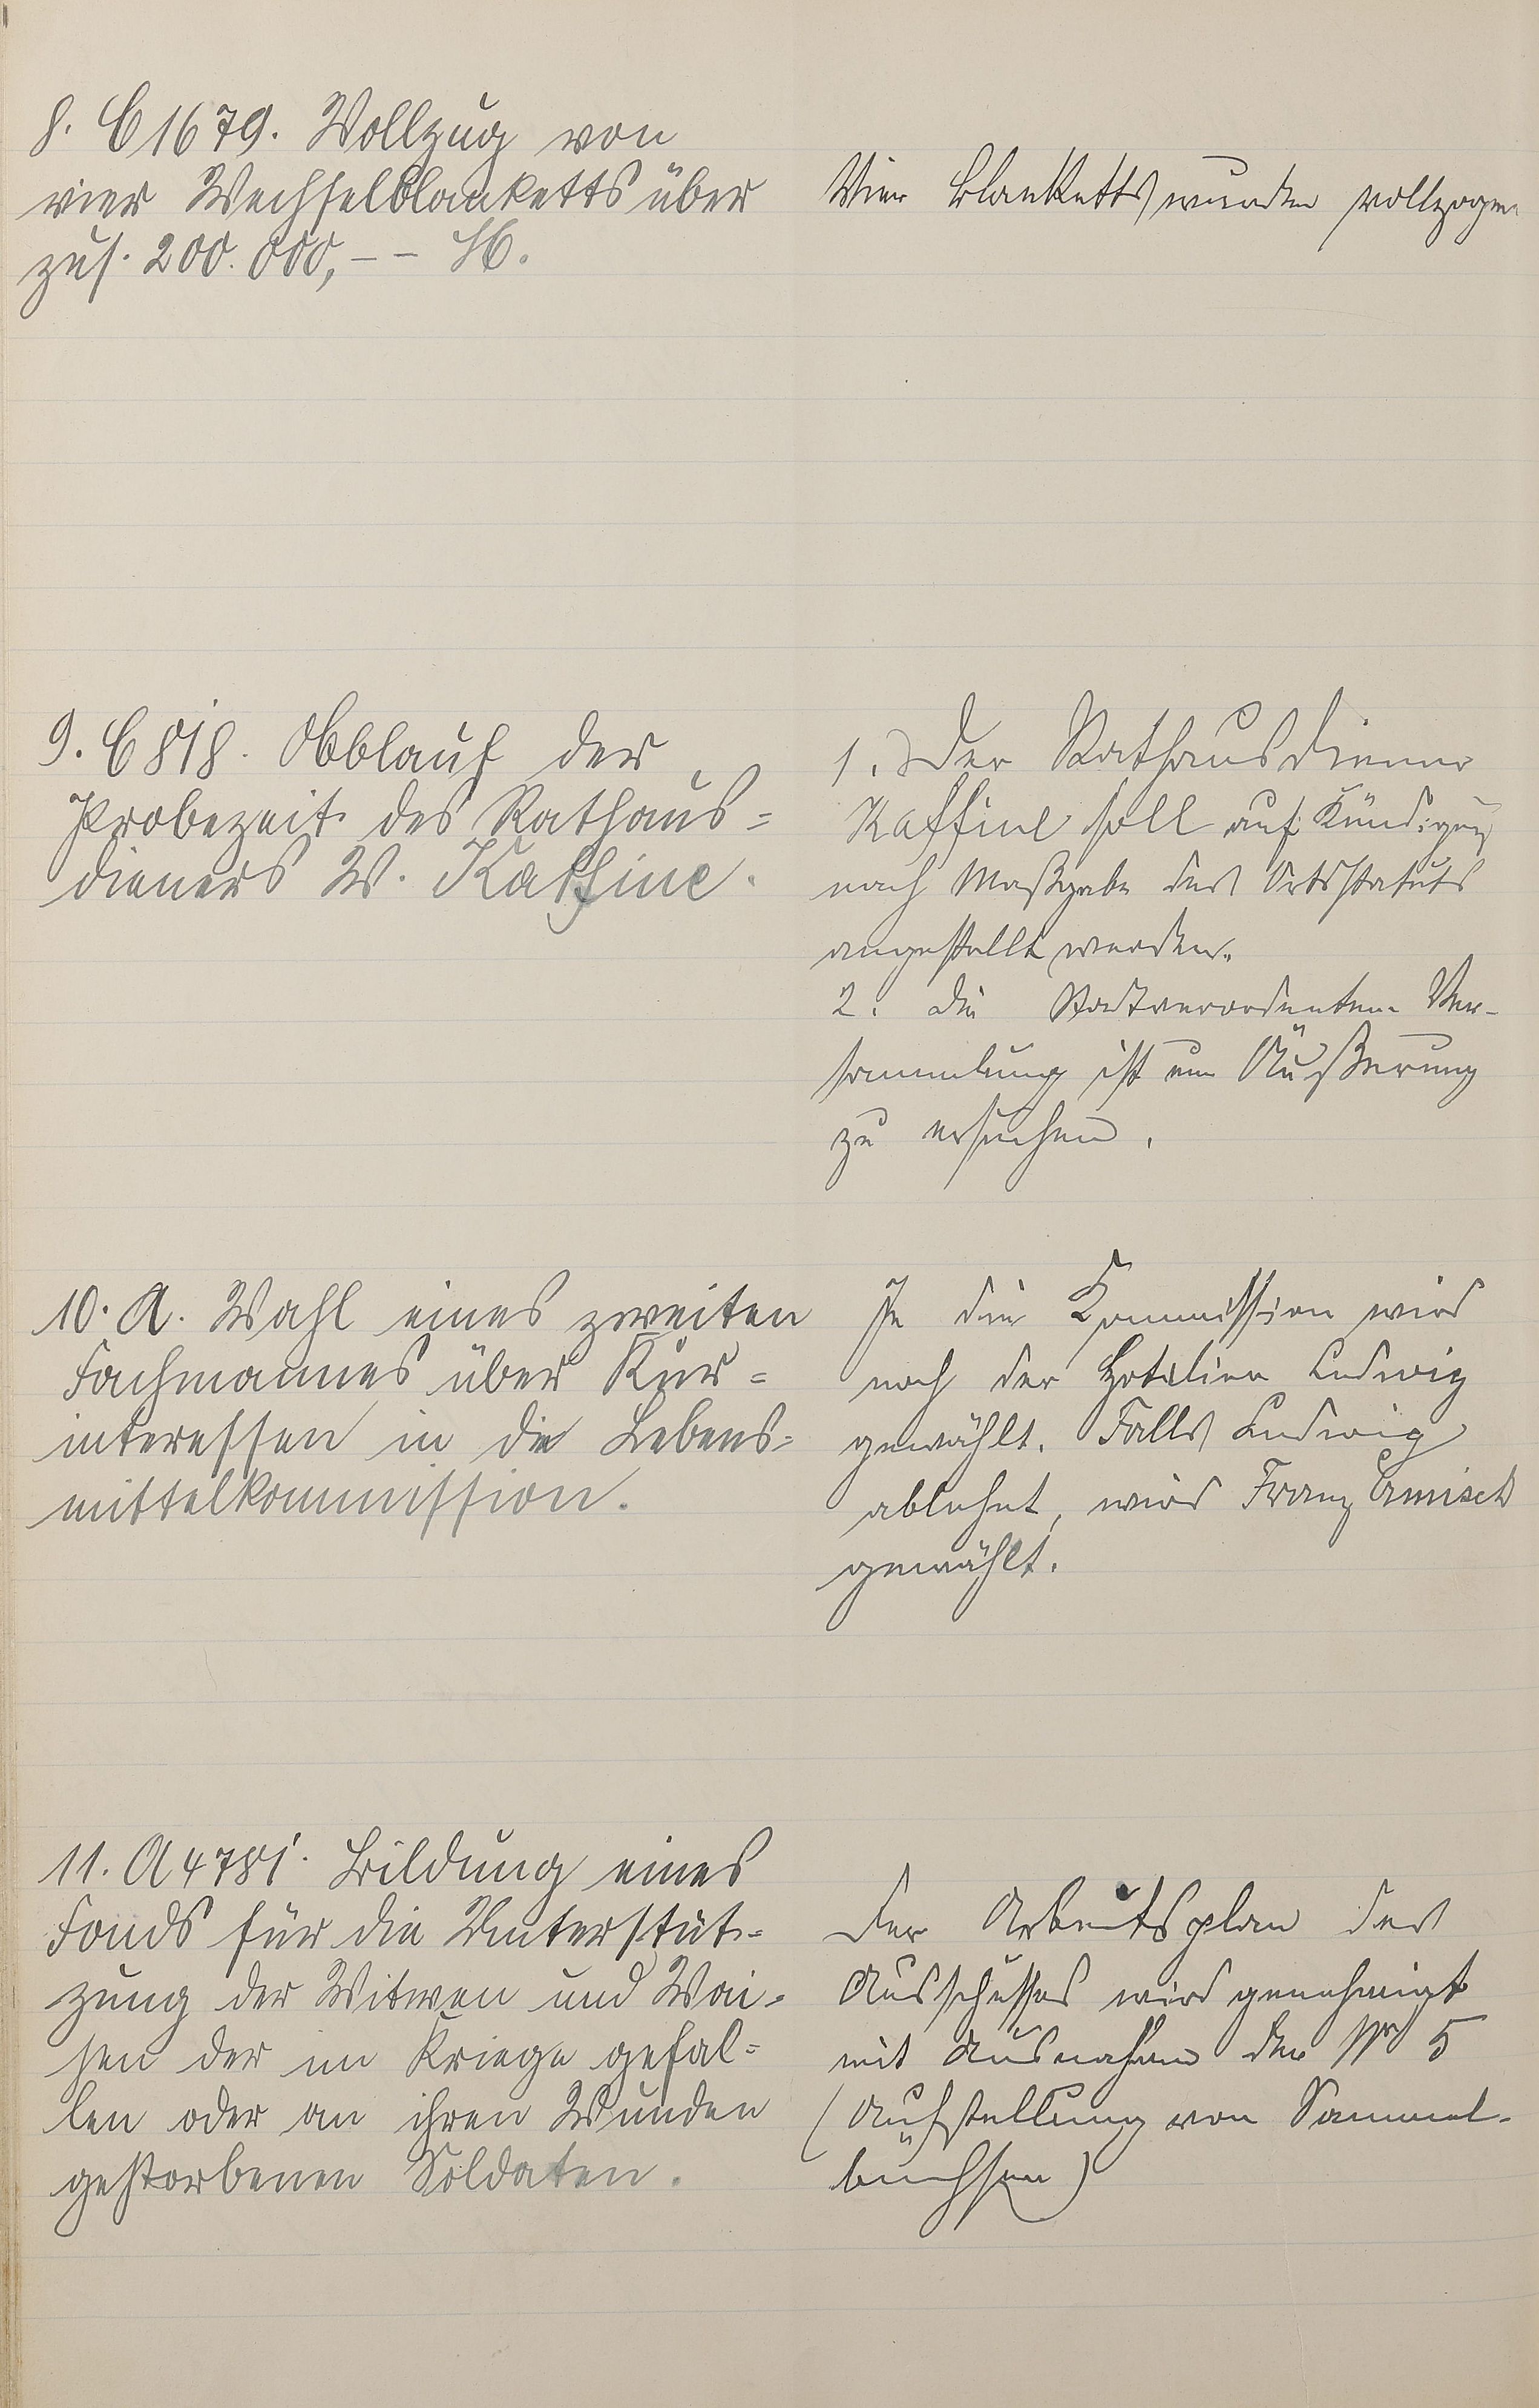 8. C 1679. Vollzug von
vier Wechselblanketts über
zus. 200.000,-- M.
Vier Blanketts wurden vollzogen.
9. C 818. Ablauf der
Probezeit des Rathaus=
dieners W. Kaffine.
1. Der Rathausdiener
Kaffine soll auf Kündigung
nach Maßgabe des Ortsstatuts
angestellt werden.
2. Die Stadtverordneten-Ver-
sammlung ist um Äußerung
zu ersuchen.
10. A. Wahl eines zweiten
Fachmannes über Kur=
interessen in die Lebens=
mittelkommission.
In die Kommission wird
noch der Hotelier Ludwig
gewählt. Falls Ludwig
ablehnt, wird Franz
gewählt.
11. A 4781. Bildung eines
Fonds für die Unterstüt-
zung der Witwen und Wai-
sen der im Kriege gefal=
len oder an ihren Wunden
gestorbenen Soldaten.
Der Arbeitsplan des
Ausschusses wird genehmigt
mit Ausnahme der Nr 5
(Aufstellung von Sammel-
büchsen)